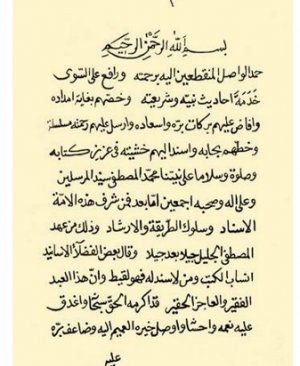 ١
بسم الله الرحمن الرحيم
حمد الواصل المنقطعين اليه برحمته ورافع على السوى
خدمة احاديث نبيه وشريعته وخصهم بغاية امداده
وافاض عليهم بركات بره واسعاده وارسل عليهم رحمته مسلسلة
وخطهم بجابه واسند اليهم خشيته فى عزيز كتابه
وصلوة وسلاما على نبينا محمد المصطفى سيد المرسلين
وعلى اله وصحبه اجمعين اما بعد فمن شرف هذه الامة
الاسناد وسلوك الطريقة والارشاد وذلك من عهد
المصطفى الجليل جيلا بعد جيلا وقال بعض الفضلاء الاسانيد
انساب الكتب ومن لا سند له فهو لقيط وان هذا العبد
الفقير والعاجز الحقير قد اكرمه الحق سبحا واغدق
عليه نعمه واحشا واوصل خيره العميم اليه وضاعف بره
عليه